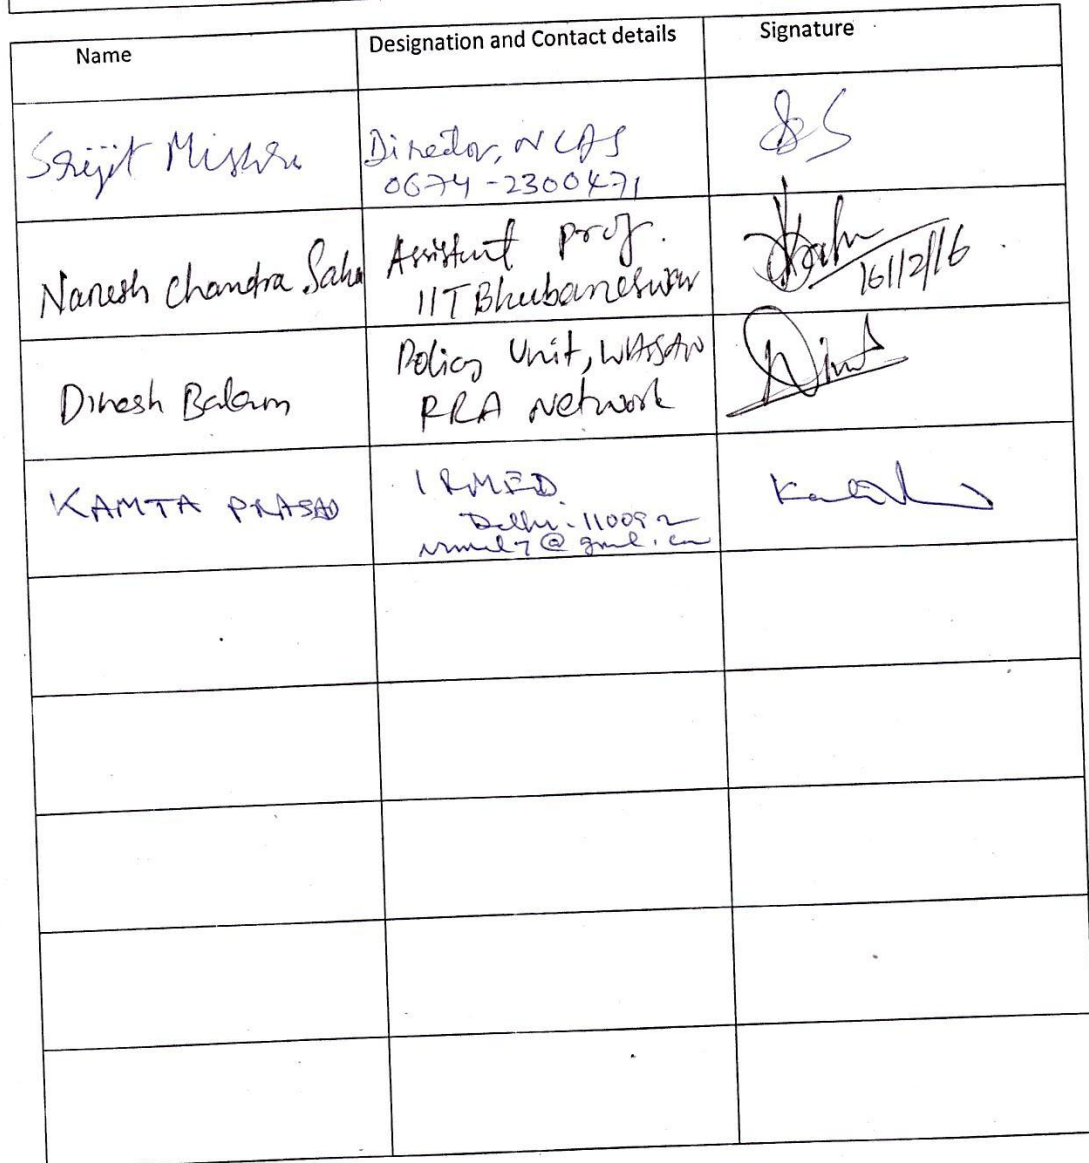 Name Designation and Contact details Signature
Srijit Mishra Director, NCDS
0674-2300471
Naresh Chandra Sahu Assistant prof.
IIT Bhubaneswar
16/12/16
Dinesh Balam Policy Unit, WASSAN
RRA Network
KAMTA PRASAD IRMED.
Delhi-110092
@